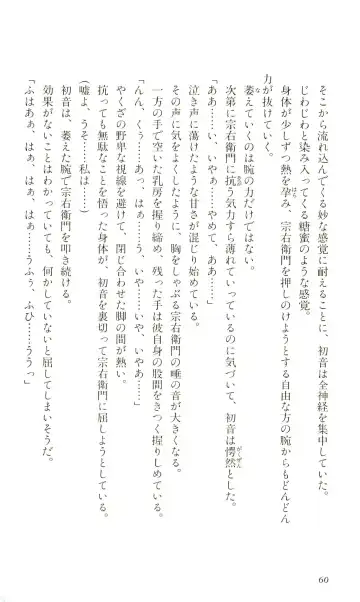 そこから流れ込んでくる妙な感覚に耐えることに、初音は全神経を集中していた。
じわじわと染み入ってくる糖蜜のような感覚。
身体が少しずつ熱を孕み、宗右衛門を押しのけようとする自由な方の腕からもどんどん
力が抜けていく。
萎えていくのは腕の力だけではない。
次第に宗右衛門に抗う気力すら薄れていっているのに気づいて、初音は愕然とした。
「ああ……い、いやぁ……やめて、ああ……」
泣き声に蕩けたような甘さが混じり始めている。
その声に気をよくしたように、胸をしゃぶる宗右衛門の唾の音が大きくなる。
一方の手で空いた乳房を握り締め、残った手は彼自身の股間をきつく握りしめている。
「んん、くぅ……あっ、はぁ……う、いや……いや、いやあ……」
やくざの野卑な視線を避けて、閉じ合わせた脚の間が熱い。
抗っても無駄なことを悟った身体が、初音を裏切って宗右衛門に屈しようとしている。
(嘘よ、うそ……私は……)
初音は、萎えた腕で宗右衛門を叩き続ける。
効果がないことはわかっていても、何かしていないと屈してしまいそうだ。
「ふはあぁ、はぁ、はぁ、はぁ……うふぅ、ふひ……ううっ」
60